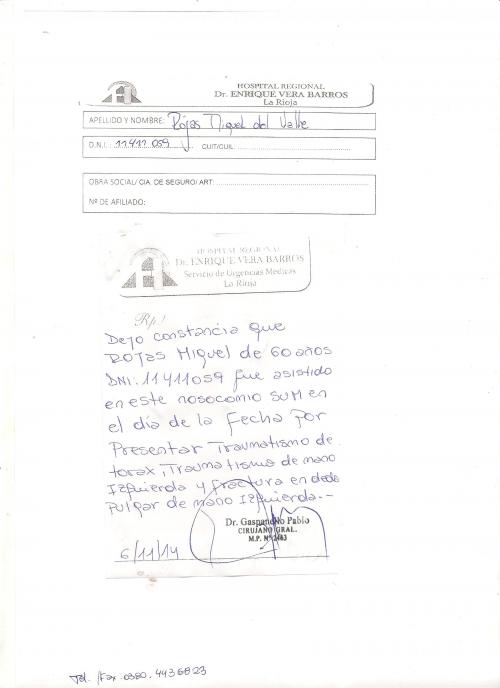 HOSPITAL REGIONAL
Dr. ENRIQUE VERA BARROS
La Rioja
APELLIDO Y NOMBRE: Rojas Miguel del Valle
D.N.I.: 11411059 CUIT/CUIL:
OBRA SOCIAL/ CIA. DE SEGURO/ ART:
Nº DE AFILIADO:
HOSPITAL REGIONAL
Dr. ENRIQUE VERA BARROS
Servicio de Urgencias Medicas
La Rioja
Rp/
Dejo constancia que
ROJAS Miguel de 60 años
DNI: 11411059 fue asistido
en este nosocomio SUM en
el día de la fecha por
Presentar Traumatismo de
torax, Traumatismo de mano
Izquierda y fractura en dedo
Pulgar de mano Izquierda.-
Dr. Gaspanello Pablo
CIRUJANO GRAL.
M.P. Nº
6/11/14
Tel. /Fax. 0380. 4436823